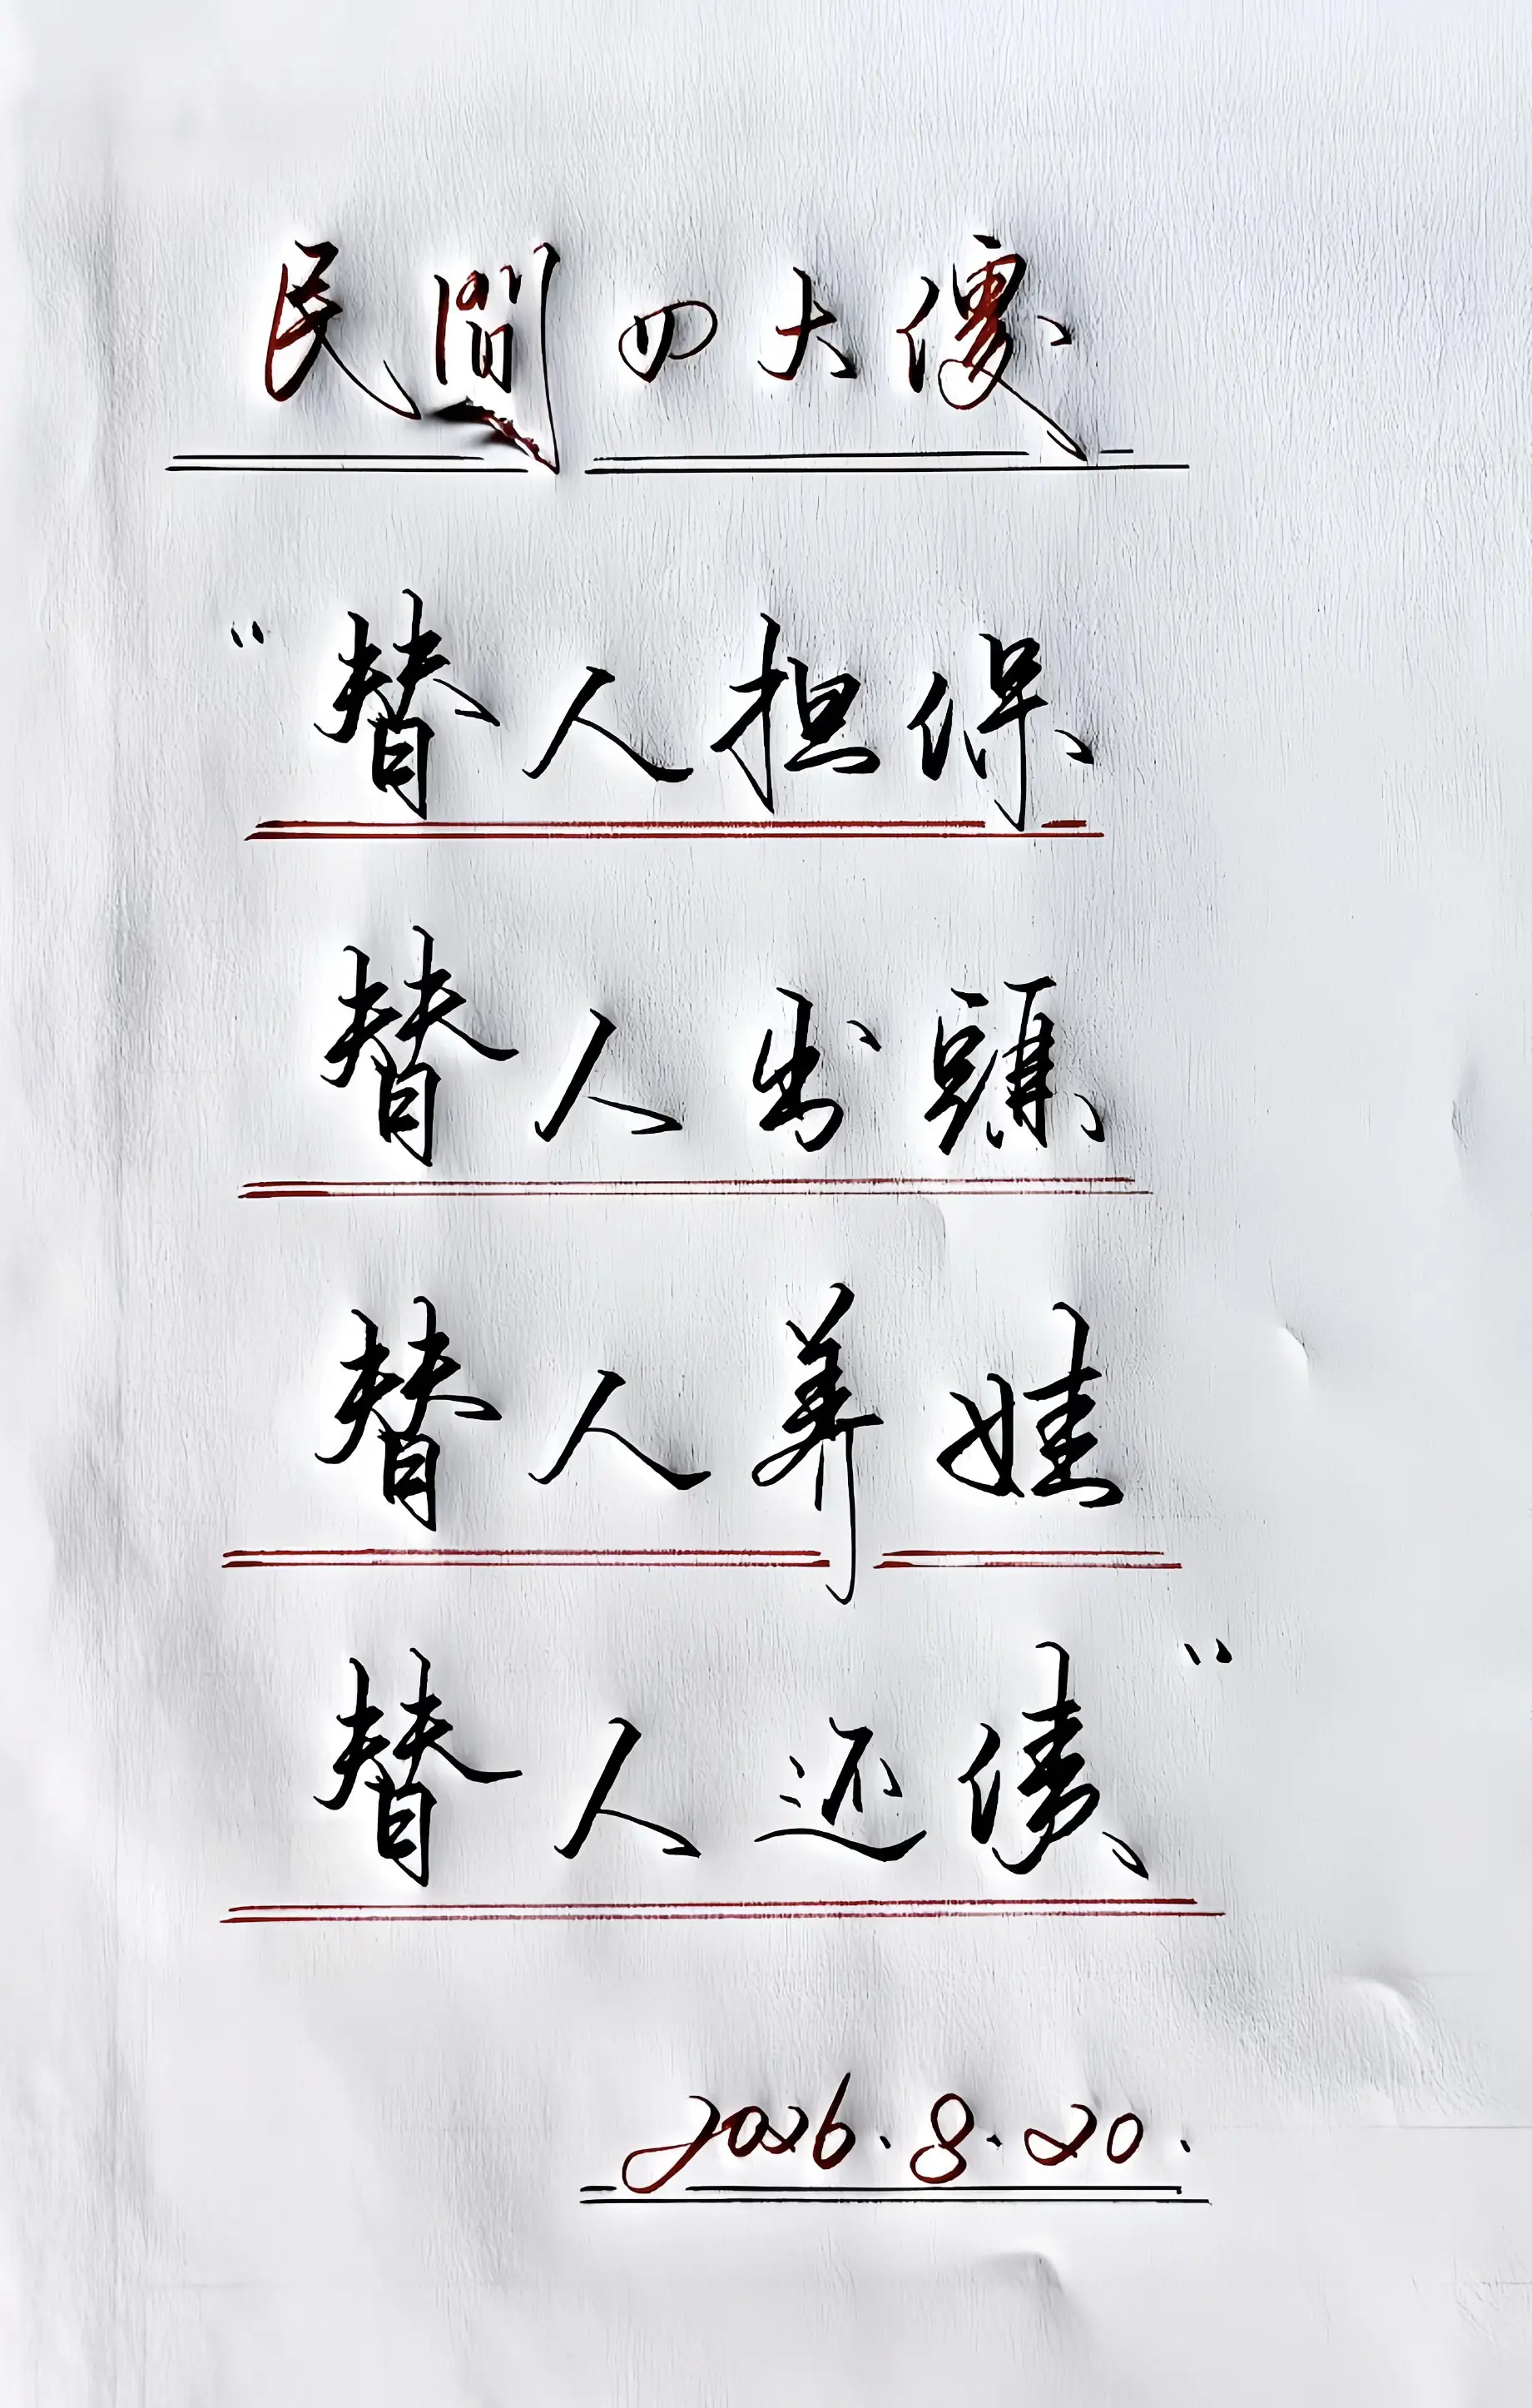 民間四大傻
“替人担保
替人出頭
替人养娃
替人还债”
2026.8.20.